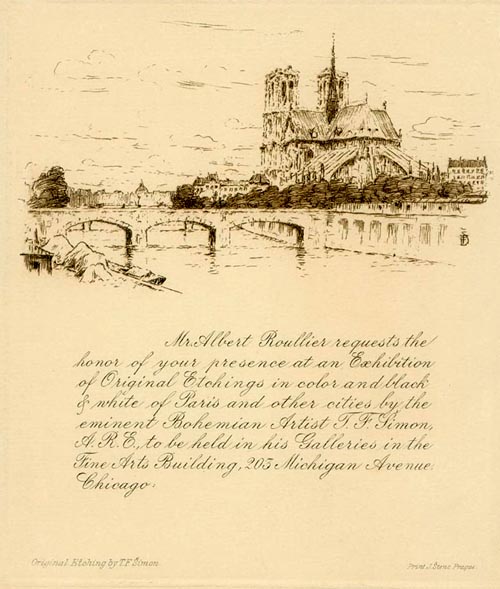 Mr. Albert Roullier requests the
honor of your presence at an Exhibition
of Original Etchings in color and black
& white of Paris and other cities, by the
eminent Bohemian Artist T. F. Simon,
A. R. E., to be held in his Galleries in the
Fine Arts Building, 203 Michigan Avenue:
Chicago:
Original Etching by T.F. Šimon.
Print J. Štenc Prague.